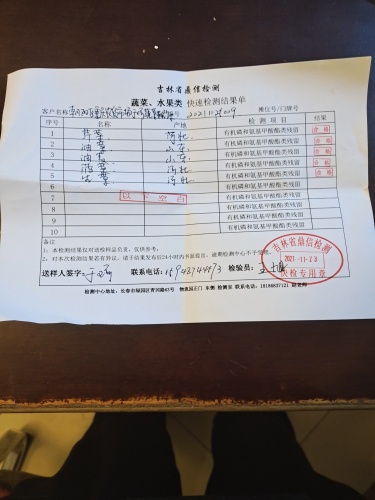 吉林省鼎信检测
蔬菜、水果类 快速检测结果单
客户名称 摊位号/门牌号
序号 产地 检测项目 结果
1 芹菜 河北 有机磷和氨基甲酸酯类残留 合格
2 油菜 山东 有机磷和氨基甲酸酯类残留 合格
3 油 山东 有机磷和氨基甲酸酯类残留 合格
4 菠菜 河北 有机磷和氨基甲酸酯类残留 合格
5 河北 有机磷和氨基甲酸酯类残留 合格
6 有机磷和氨基甲酸酯类残留
7 以下空白 有机磷和氨基甲酸酯类残留
8 有机磷和氨基甲酸酯类残留
9 有机磷和氨基甲酸酯类残留
10 有机磷和氨基甲酸酯类残留
备注
1：本检测结果仅对送检样品负责，仅供参考。
2：对本次检测结果若有异议，请于结果发布后24小时内书面提出，逾期检测中心不予受理。
吉林省鼎信检测
2021-11-23
快检专用章
送样人签字： 联系电话：15943744473 检验员：
检测中心地址：长春市绿园区青冈路63号 物流园正门 东侧 检测室 联系电话：15186837121